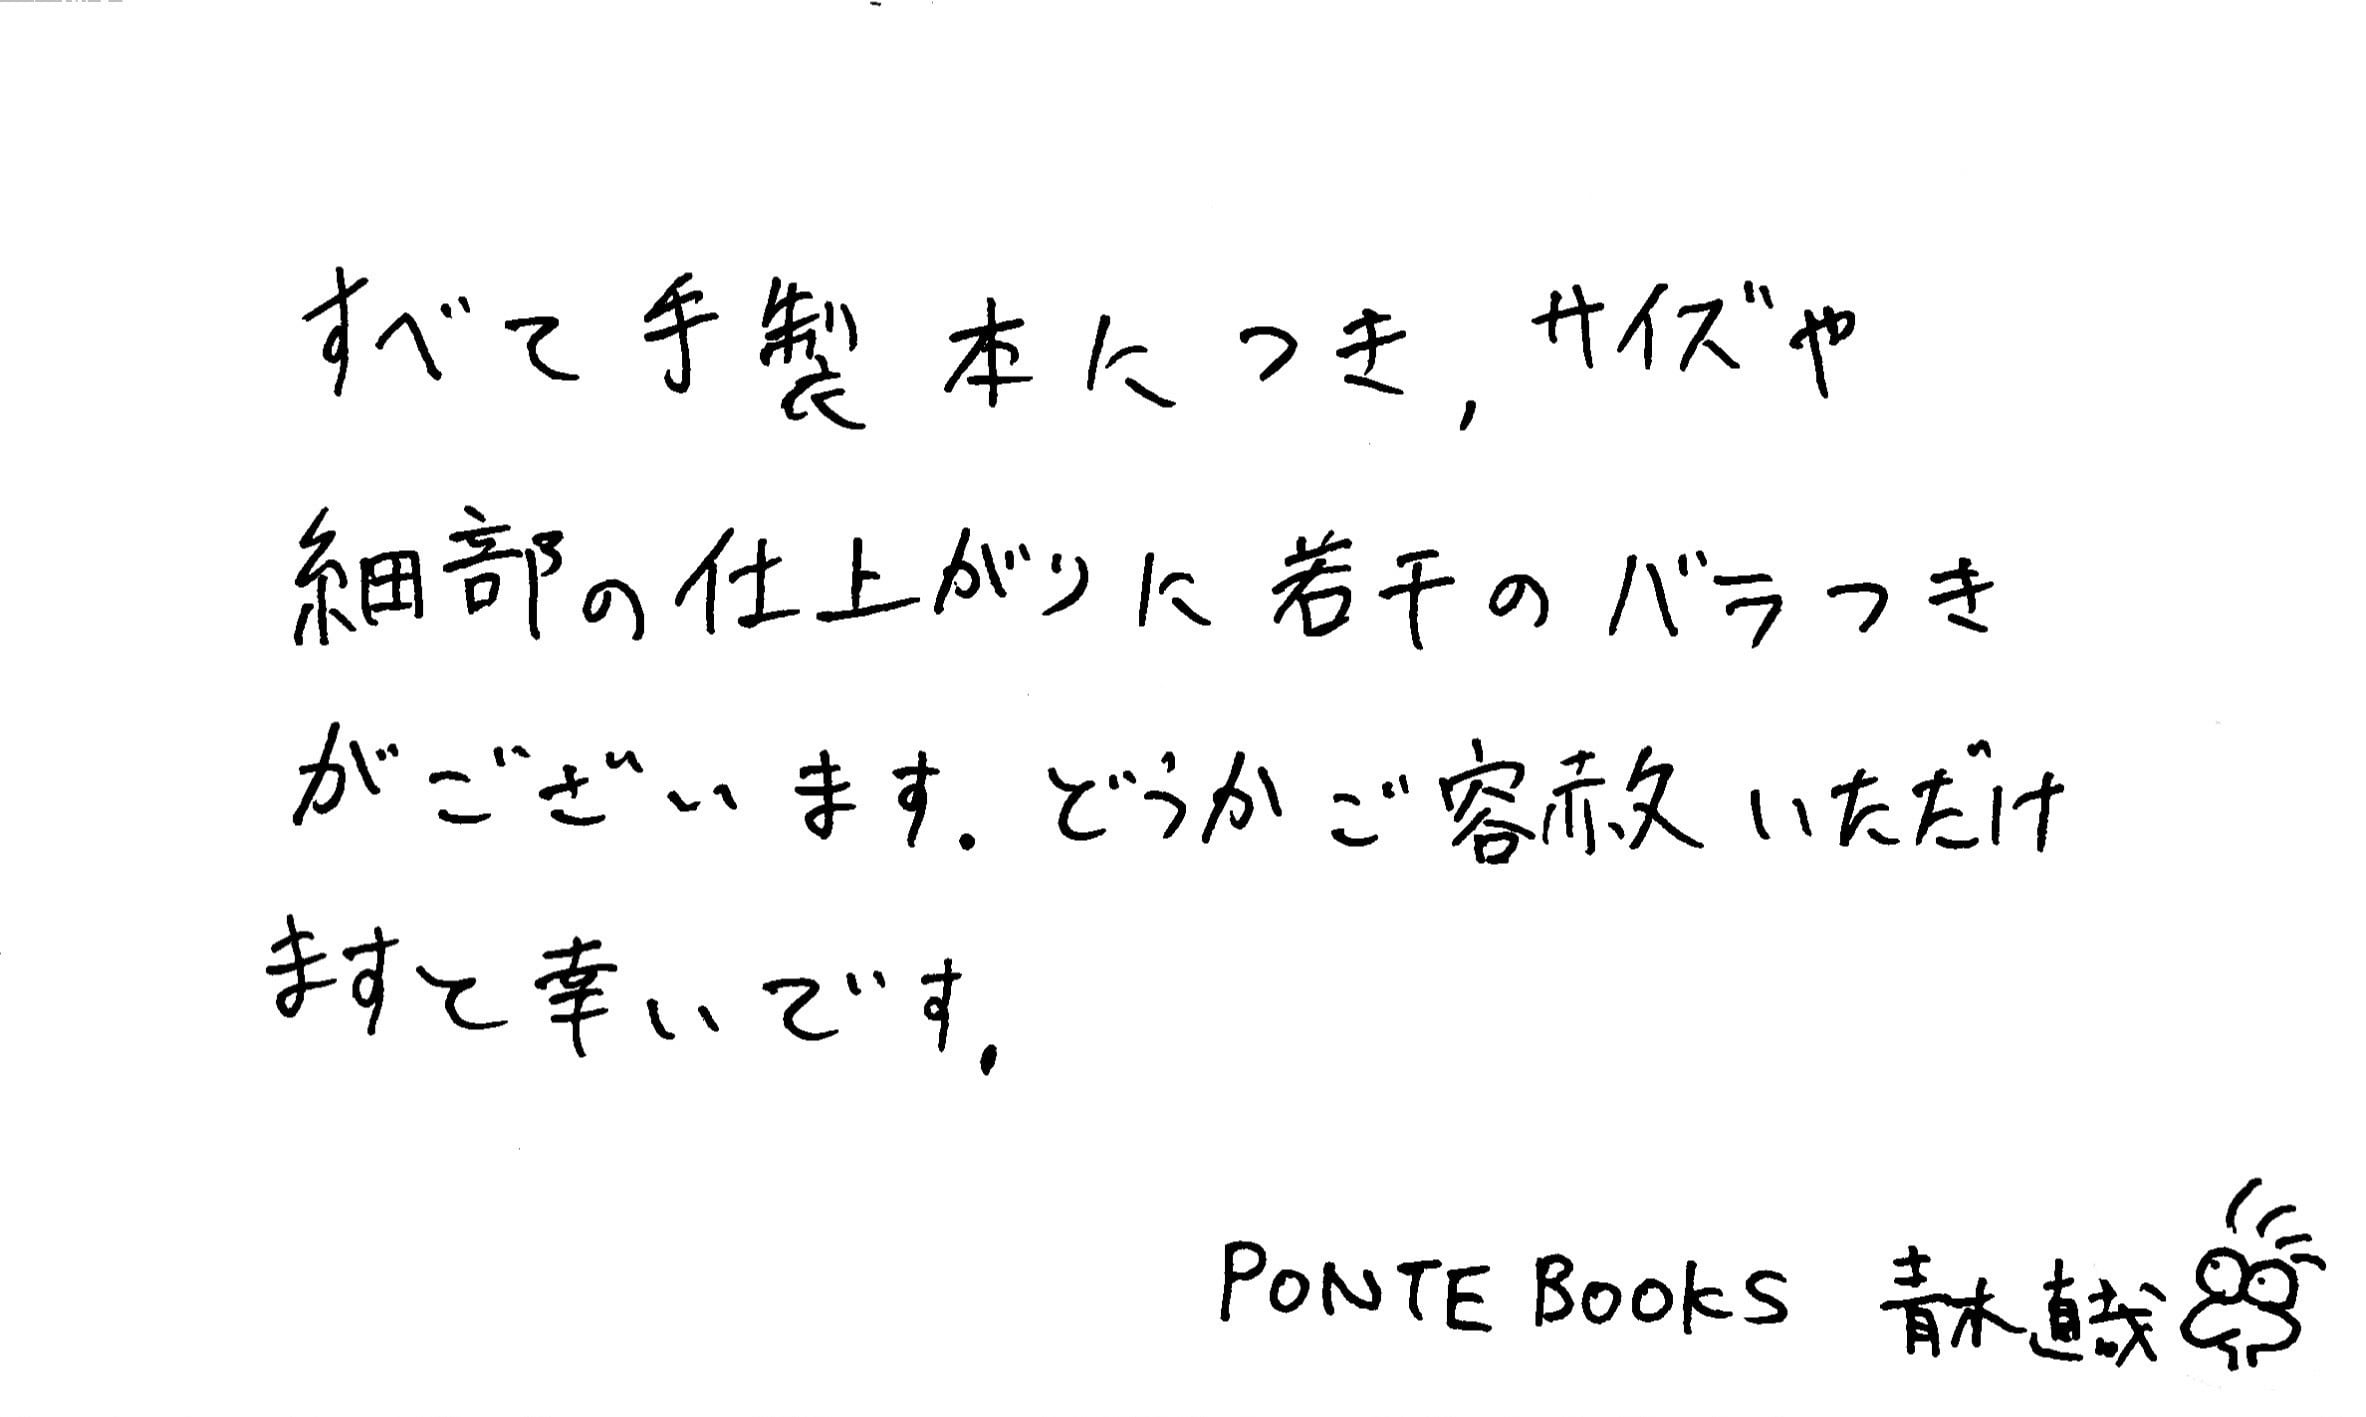 すべて手製本につき,サイズや
細部の仕上がりに若干のバラつき
がございます.どうかご容赦いただけ
ますと幸いです.
PONTE BOOKS 青木直哉